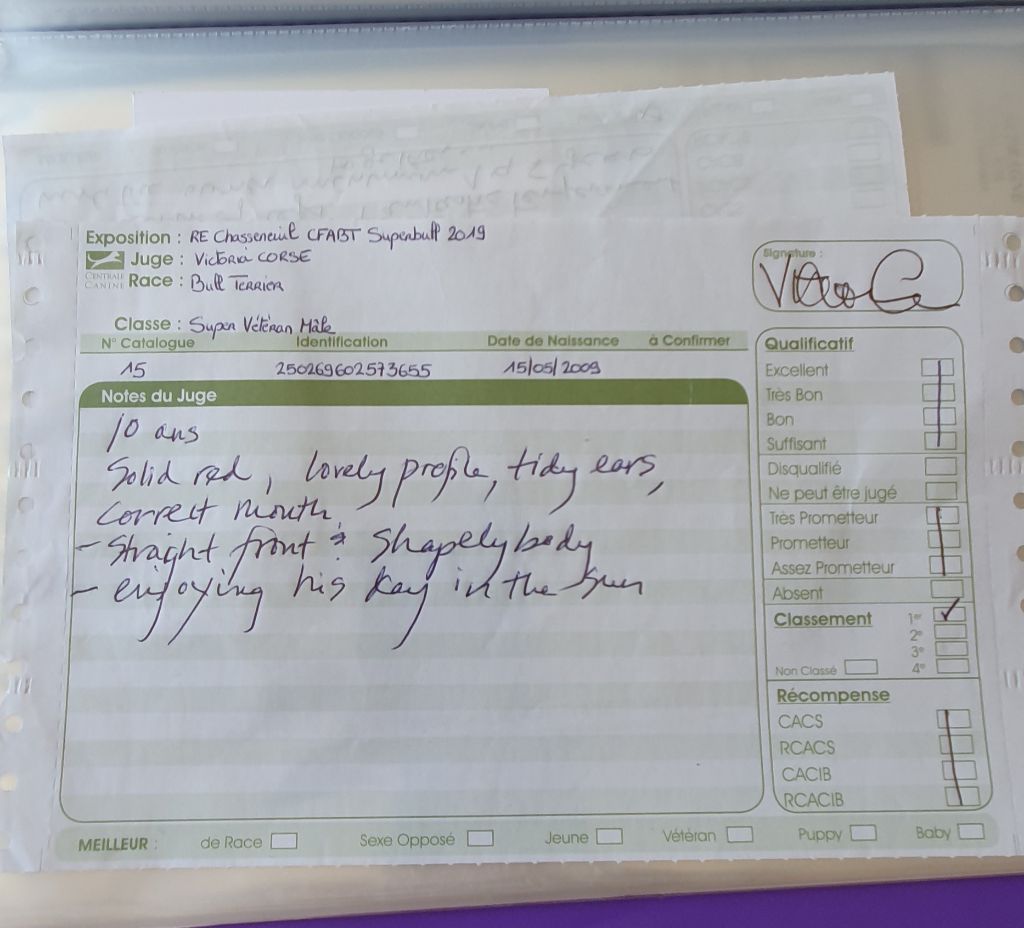 Exposition : RE Chasseneuil CFABT Superbull 2019
Juge : Victoria CORSE
CENTRALE CANINE
Race : Bull TERRIER
Signature :
Classe : Super Vétéran Mâle
N° Catalogue Identification Date de Naissance à Confirmer
15 250269602573655 15/05/2009
Notes du Juge
10 ans
Solid red, lovely profile, tidy ears,
correct mouth.
- Straight front & Shapely body
- enjoying his day in the sun
Qualificatif
Excellent
Très Bon
Bon
Suffisant
Disqualifié
Ne peut être jugé
Très Prometteur
Prometteur
Assez Prometteur
Absent
Classement 1er
2e
3e
Non Classé 4e
Récompense
CACS
RCACS
CACIB
RCACIB
MEILLEUR : de Race Sexe Opposé Jeune Vétéran Puppy Baby